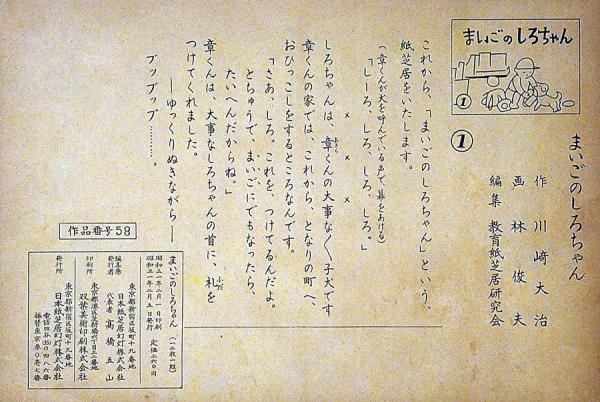 まいごのしろちゃん
①
まいごのしろちゃん
作 川崎大治
画 林俊夫
編集 教育紙芝居研究会
①
これから、「まいごのしろちゃん」という、
紙芝居をいたします。
(章くんが犬を呼んでいる声で、幕をあける)
「しーろ、しろ、しろ、しろ。」
× × ×
しろちゃんは、章くんの大事な〱子犬です
章くんの家では、これから、となりの町へ、
おひっこしをするところなんです。
「さあ、しろ。これを、つけてるんだよ。
とちゅうで、まいごにでもなったら、
たいへんだからね。」
章くんは、大事なしろちゃんの首に、札をふだ
つけてくれました。
―ゆっくりぬきながら―
ブッブッブ………。
作品番号58
まいごのしろちゃん (一二枚一組)
昭和三一年二月一日印刷
昭和三一年二月五日発行 定価二六〇円
東京都新宿区坂町十九番地
編集兼発行者 日本紙芝居幻灯株式会社
代表者 高橋五山
東京都港区芝新橋六丁目三二番地
印刷所 双葉美術印刷株式会社
東京都新宿区坂町十九番地
発行所 日本紙芝居幻灯株式会社
電話四谷(35)〇四八六番
振替東京参〇壱七番